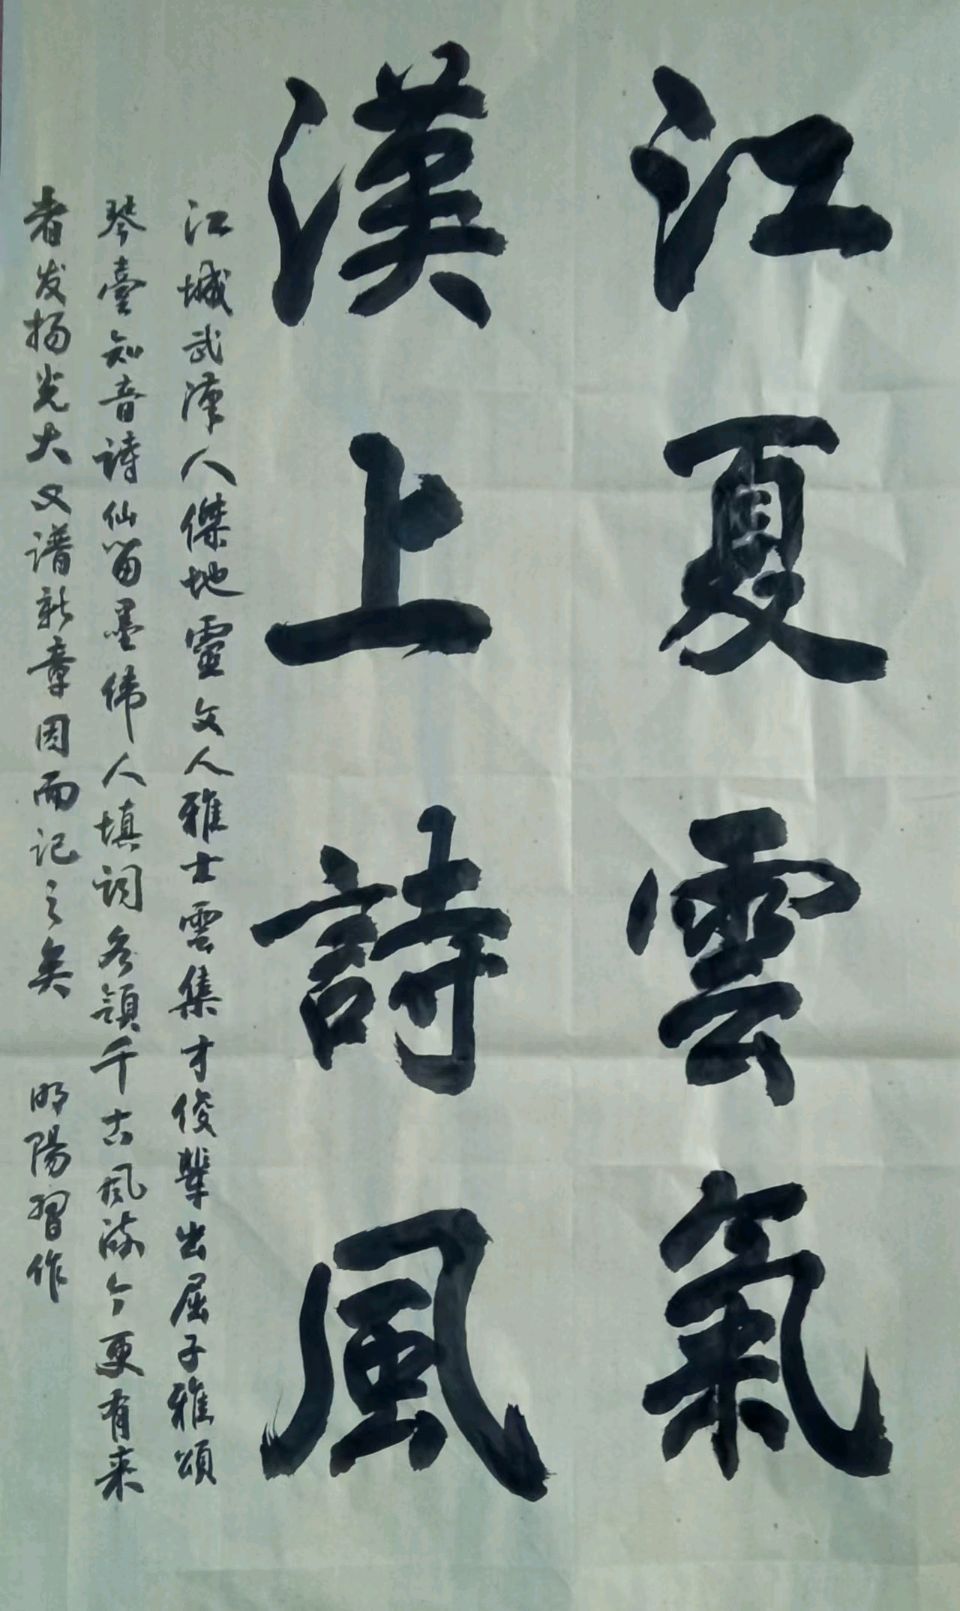 江夏雲氣
漢上詩風
江城武漢人傑地靈文人雅士雲集才俊輩出屈子雅頌
琴臺知音詩仙留墨偉人填词各領千古风流今更有来
者发扬光大又谱新章因而记之矣 明陽習作